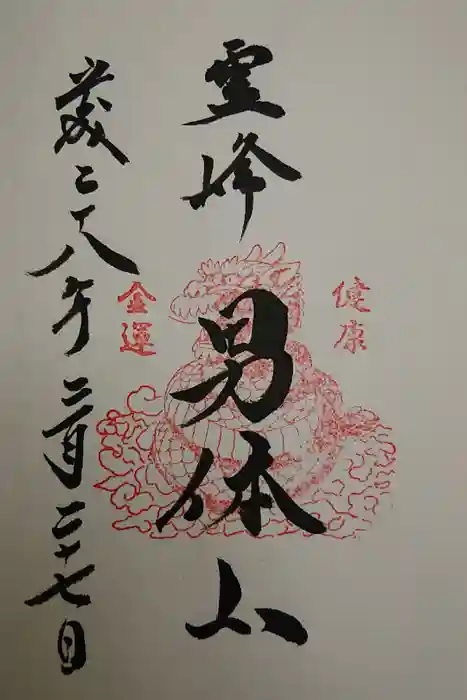 霊峰
男体山
健康
金運
歳二十八年二月二十七日